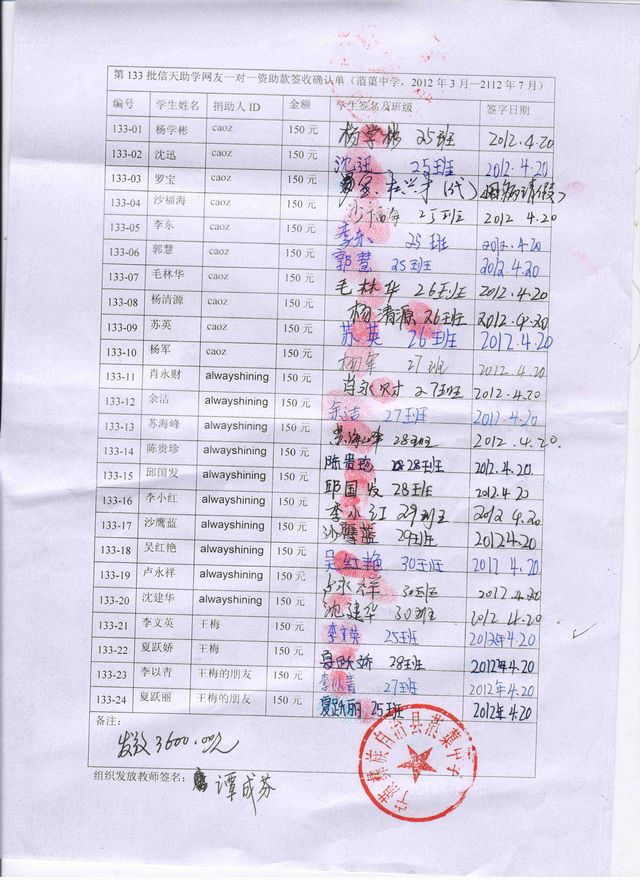 第133批信天助学网友一对一资助款签收确认单（蒗蕖中学，2012年3月—2112年7月）
编号 学生姓名 捐助人ID 金额 学生签名及班级 签字日期
133-01 杨学彬 caoz 150元 杨学彬 25班 2012.4.20
133-02 沈迅 caoz 150元 沈迅 25班 2012.4.20
133-03 罗宝 caoz 150元 (代)
133-04 沙福海 caoz 150元 沙福海 25班 2012 4.20
133-05 李东 caoz 150元 李东 25班 2012.4.20
133-06 郭慧 caoz 150元 郭慧 25班 2012.4.20
133-07 毛林华 caoz 150元 毛林华 26班 2012.4.20
133-08 杨清源 caoz 150元 杨清源 26班 2012.4.20
133-09 苏英 caoz 150元 苏英 26班 2012.4.20
133-10 杨军 caoz 150元 杨军 27班 2012.4.20
133-11 肖永财 alwayshining 150元 肖永财 27班 2012.4.20
133-12 余洁 alwayshining 150元 余洁 27班 2012.4.20
133-13 苏海峰 alwayshining 150元 苏海峰 28班 2012.4.20.
133-14 陈贵珍 alwayshining 150元 陈贵珍 28班 2012.4.20.
133-15 邱国发 alwayshining 150元 邱国发 28班 2012.4.20
133-16 李小红 alwayshining 150元 李小红 29班 2012 4.20
133-17 沙鹰蓝 alwayshining 150元 沙鹰蓝 29班 20124.20
133-18 吴红艳 alwayshining 150元 吴红艳 30班 2012.4.20
133-19 卢永祥 alwayshining 150元 卢永祥 30班 2012.4.20
133-20 沈建华 alwayshining 150元 沈建华 30班 2012.4.20
133-21 李文英 王梅 150元 李文英 25班 2012年4.20
133-22 夏跃娇 王梅 150元 夏跃娇 28班 2012年4.20
133-23 李以青 王梅的朋友 150元 李以青 27班 2012年4.20
133-24 夏跃丽 王梅的朋友 150元 夏跃丽 25班 2012年4.20
备注：
发放3600.00元
宁蒗彝族自治县蒗蕖中学
组织发放教师签名： 谭成芬